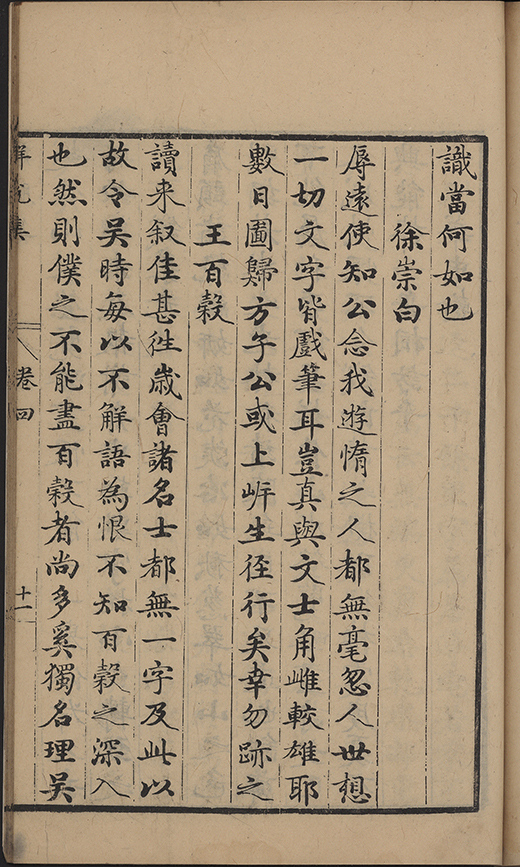 識當何如也
徐崇白
辱遠使知公念我遊惰之人都無毫忽人世想
一切文字皆戲筆耳豈真與文士角雌較雄耶
數日圖歸方子公或上岍生徑行矣幸勿跡之
王百穀
讀来叙佳甚徃歲會諸名士都無一字及此以
故令吳時每以不解語為恨不知百穀之深入
也然則僕之不能盡百穀者尚多奚獨名理吳
卷四
十一